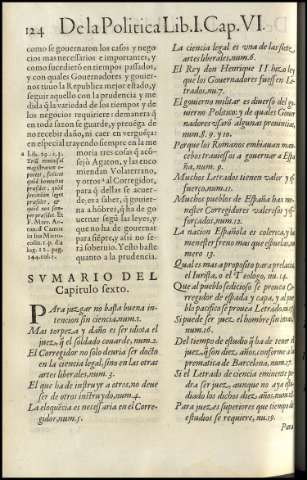 124 De la Politica Lib. I. Cap. VI.
como se gouernaron los casos y nego
cios mas necessarios e importantes, y
como sucedieron en tiempos passados,
y con quales Gouernadores y gouier-
nos tiuuo la Republica mejor estado, y
seguir aquello con la prudencia y me
dida q̃ la variedad de los tiempos y de
los negocios requiriere: demanera q̃
en toda sazon se guarde, y prouéa de
no recebir daño, ni caer en verguẽça:
en especial trayendo siempre en la me
moria tres cosas q̃ acõ-
sejò Agaton, y las enco
miendan Volaterrano,
y otros al Corregidor,
para q̃ dellas se acuer-
de, es a saber, q̃ gouier-
na a hõbres, q̃ ha de go
uernar segũ las leyes, y
que no ha de gouernar
para siẽpre, y assi no se-
ra soberuio. Y esto baste
quanto a la prudencia.
SVMARIO DEL
Capitulo sexto.
PAra juzgar no basta buena in-
tencion sin ciencia, num. 1.
Mas torpeza y daño es ser idiota el
juez, q̃ el soldado couarde, num. 2.
El Corregidor no solo deuria ser docto
en la ciencia legal, sino en las otras
artes liberales, num. 3.
El que ha de instruyr a otros, no deue
ser de otros instruydo, num. 4.
La eloquẽcia es necessaria en el Corre-
gidor, num. 5.
La ciencia legal es vna de las siete
artes liberales, num. 6.
El Rey don Henrique II hizo ley
que los Gouernadores fuessen Le-
trados, nu. 7.
El gouierno militar es diuerso del go
uierno
num. 8. 9. y 10.
Porque los Romanos embiauan man
cebos trauessos a gouernar a Espa
ña, num.
Muchos Letrados tienen valor y es
fuerço, num. 11.
Muchos pueblos de España han me
nester Corregidores valerosos y es
forçados, num. 12.
La nacion Española es colerica, y ha
menester freno mas que espuelas, nu
mero 13.
Qual es mas a proposito para prelacia
el Iurista, o el Teologo, nu. 14.
Que al pueblo sedicioso se prouea Co-
rregidor de espada y capa, y al pue
blo pacifico se prouea Letrado, nu.
Si puede ser juez el hombre sin letras,
num. 16.
Del tiempo de estudio q̃ ha de tener el
juez, q̃ son diez años, conforme a la
prematica de Barcelona, num. 17.
Si el Letrado de ciencia eminente po
dra ser juez, aunque no aya estu
diado los dichos diez años, num.
Para juezes superiores que tiempo de
estudios se requiere, nu. 19.
Para